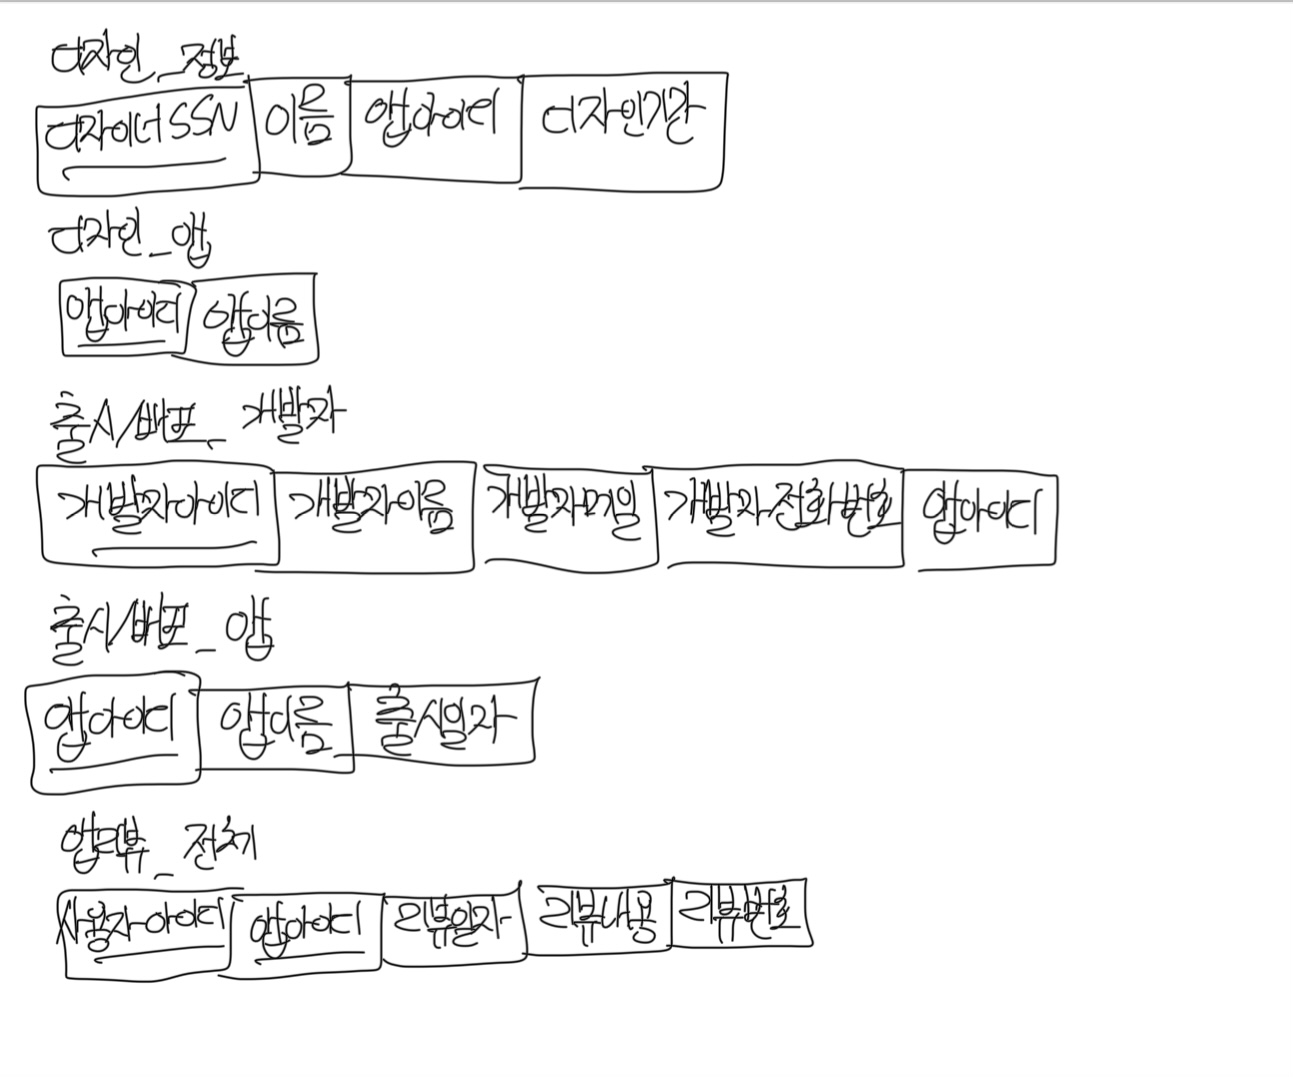 디자인_정보
디자이너SSN 이름 앱아이디 디자인기간
디자인_앱
앱아이디 앱이름
출시/배포_개발자
개발자아이디 개발자이름 개발자메일 개발자전화번호 앱아이디
출시/배포_앱
앱아이디 앱이름 출시일자
앱리뷰_전체
사용자아이디 앱아이디 리뷰일자 리뷰내용 리뷰번호